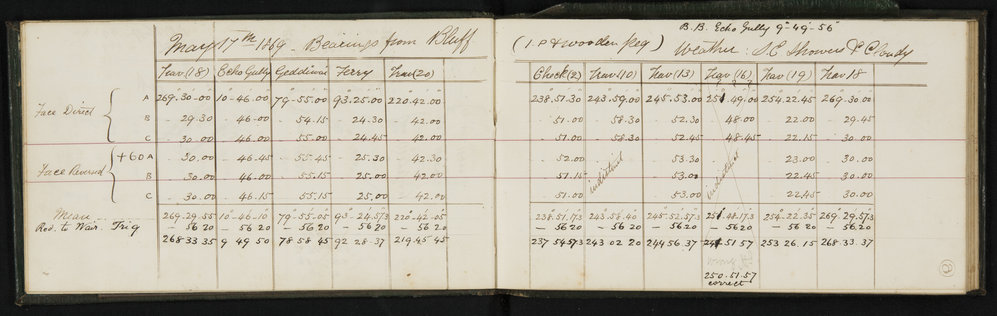 B.B. Echo Gully 9°-49'-56"
May 17th 1869 - Bearings from Bluff
(I.P & wooden peg) Weather: S.E Showers & Cloudy
Trav (18) Echo Gully Geddinis Ferry Trav (20) Check (2) Trav (10) Trav (13) Trav (16) Trav (19) Trav 18
Face Direct
A 269.30.00 10-46.00 79-55.00 93.25.00 220.42.00 238.51.30 243.59.00 245.53.00 251.49.00 254.22.45 269.30.00
B - 29.30 - 46-00 - 54.15 - 24.30 - 42.00 - 51.00 - 58.30 - 52.30 - 48.00 - 22.00 - 29.45
C - 30.00 - 46.00 - 55.00 - 24.45 - 42.00 - 51.00 - 58.30 - 52.45 - 48.45 - 22.15 - 30.00
Face Reversed
+60 A - 30.00 - 46.45 - 55.45 - 25.30 - 42.30 - 52.00 indistinct - 53.30 indistinct - 23.00 - 30.00
B - 30.00 - 46.00 - 55.15 - 25.00 - 42.00 - 51.15 - 53.00 - 22.45 - 30.00
C - 30.00 - 46.15 - 55.15 - 25.00 - 42.00 - 51.00 - 53.00 - 22.45 - 30.00
Mean 269.29.55 10-46-10 79-55-05 93-24.57.3 220-42-05 238.51.17.3 243.58.40 245.52.57.3 251.48.17.3 254.22.35 269.29.57.3
Red. to Wair. Trig - 56 20 - 56 20 - 56 20 - 56 20 - 56 20 - 56 20 - 56 20 - 56 20 - 56 20 - 56 20 - 56.20
268 33 35 9 49 50 78 58 45 92 28.37 219.45 45 237 54 57.3 243 02 20 244 56.37 51 57 253 26.15 268.33.37
wrong
250.51.57
correct